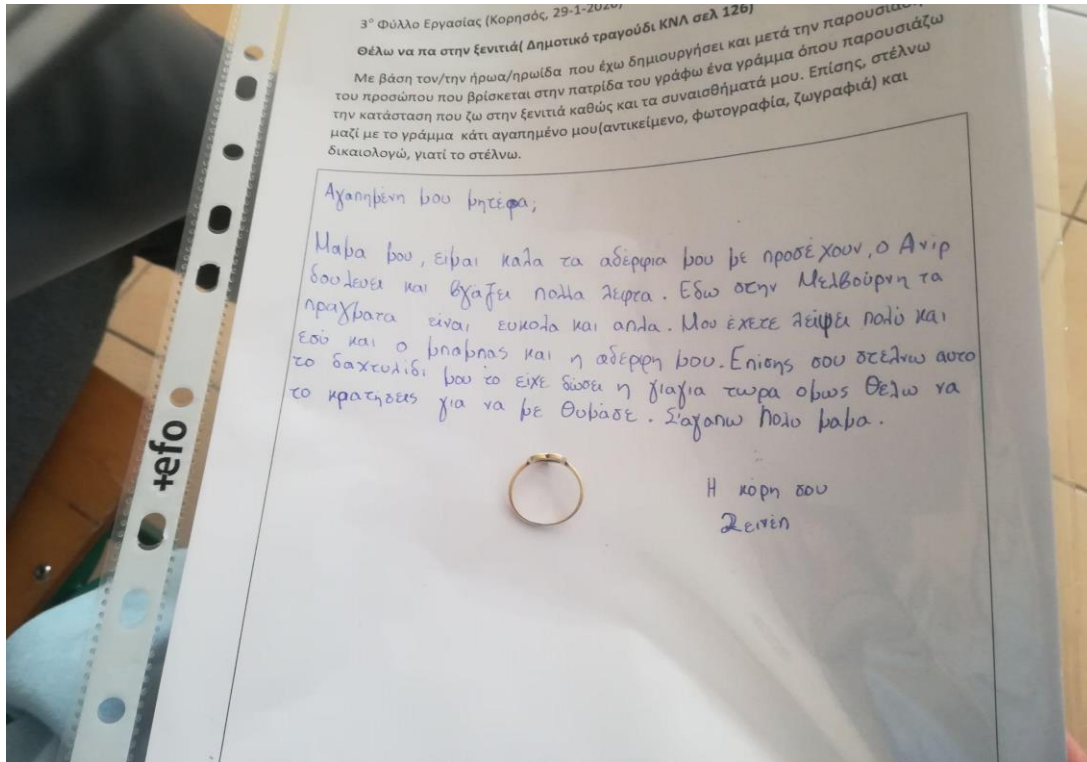 3° Φύλλο Εργασίας (Κορησός, 29-1-2020)
Θέλω να πα στην ξενιτιά( Δημοτικό τραγούδι ΚΝΛ σελ 126)
Με βάση τον/την ήρωα/ηρωίδα που έχω δημιουργήσει και μετά την παρουσίαση
του προσώπου που βρίσκεται στην πατρίδα του γράφω ένα γράμμα όπου παρουσιάζω
την κατάσταση που ζω στην ξενιτιά καθώς και τα συναισθήματά μου. Επίσης, στέλνω
μαζί με το γράμμα κάτι αγαπημένο μου(αντικείμενο, φωτογραφία, ζωγραφιά) και
δικαιολογώ, γιατί το στέλνω.
Αγαπημένη μου μητέρα,
Μαμα μου, ειμαι καλα τα αδέρφια μου με προσέχουν, ο Ανίρ
δουλευει και βγάζει πολλα λεφτα. Εδω στην Μελβούρνη τα
πραγματα είναι ευκολα και απλα. Μου έχετε λείψει πολύ και
εσύ και ο μπαμπας και η αδέρφη μου. Επίσης σου στέλνω αυτο
το δαχτυλίδι μου το είχε δώσει η γιαγια τωρα ομως θέλω να
το κρατησεις για να με θυμάσε. Σ'αγαπω πολυ μαμα.
Η κόρη σου
Ζεινέπ
+efo